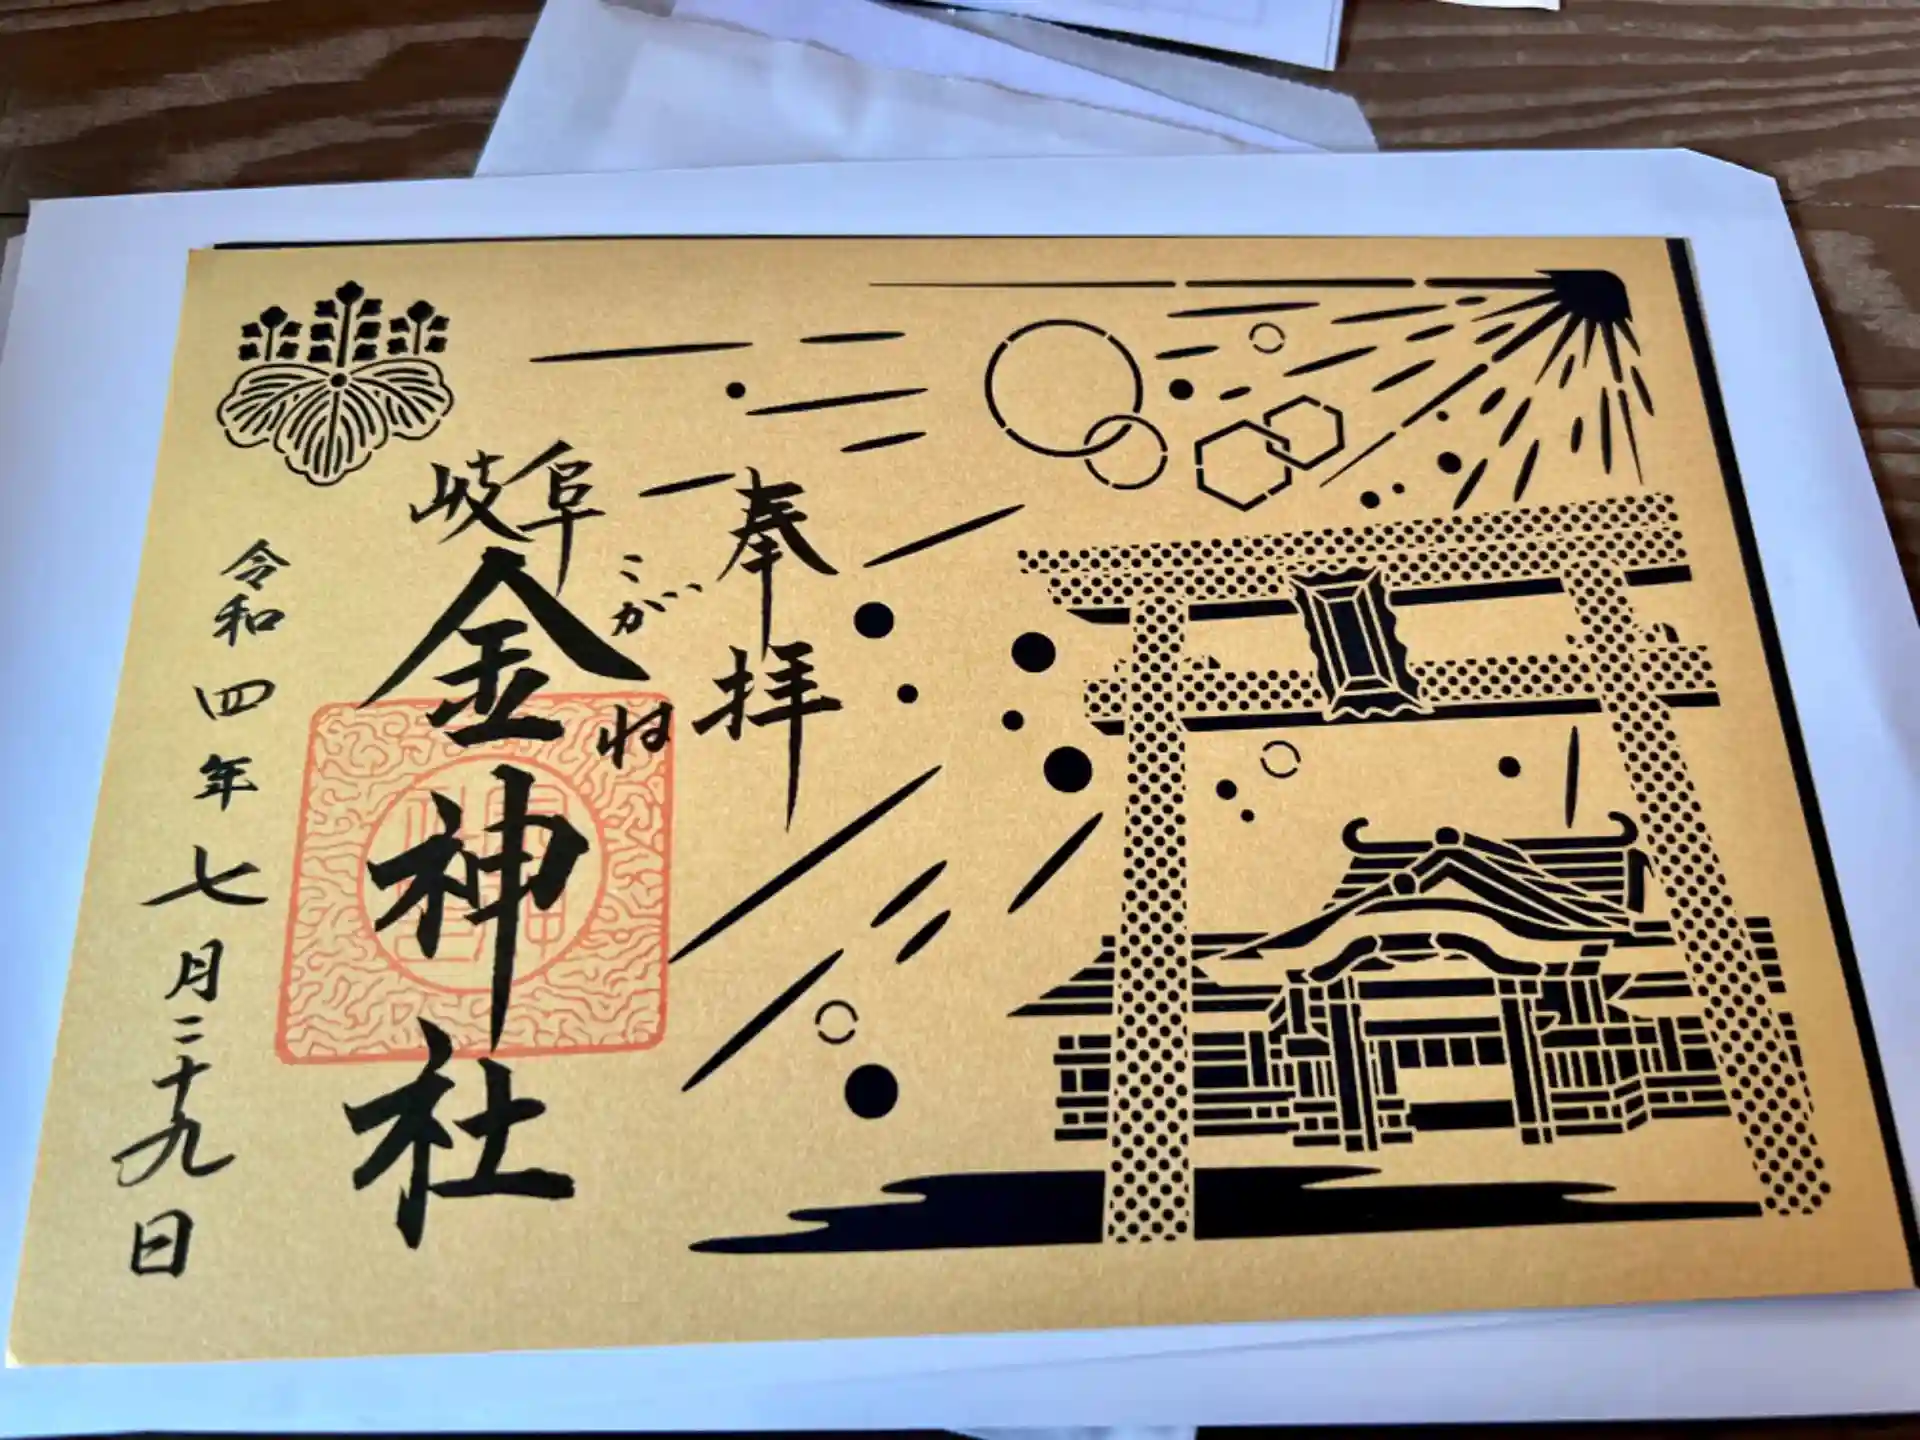 奉拝
岐阜
金神社
こがね
令和四年七月二十九日